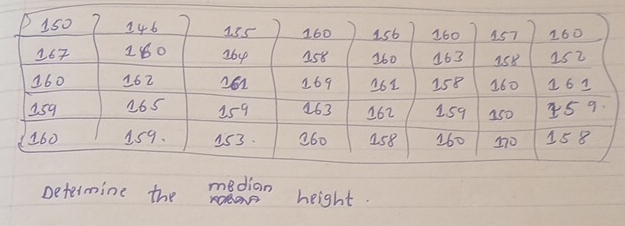 150 146 155 160 156 160 157 160
167 160 164 158 160 163 158 152
160 162 161 169 161 158 160 161
159 165 159 163 162 159 150 159.
160 159. 153. 160 158 160 170 158
Determine the median height.